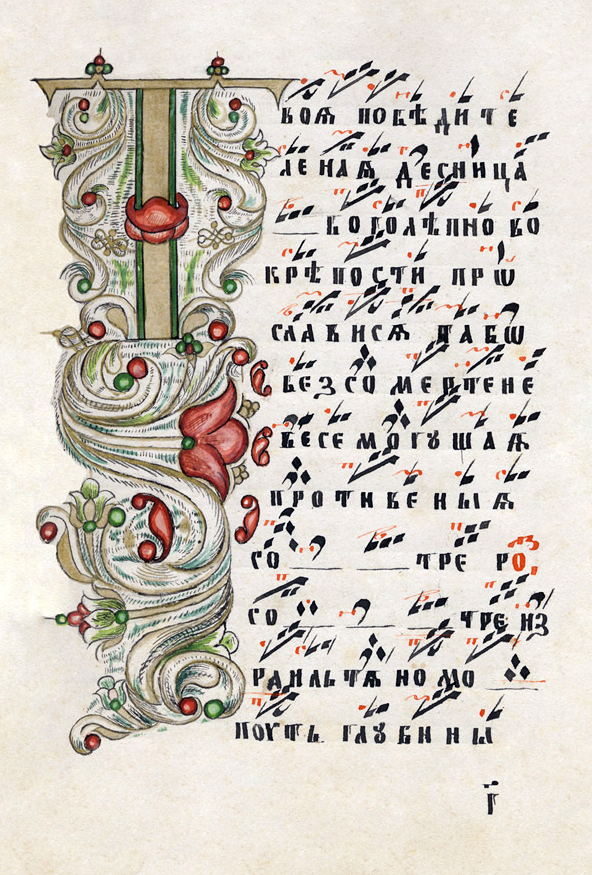 ТВОѦ ПОБѢДИТЕ
ЛЕНАѦ ДЕСНИЦА
БОГОЛѢПНО ВО
КРѢПОСТИ ПРѠ
СЛАВИСѦ ТАБѠ
БЕЗСОМЕРТЕНЕ
ВЕСЕМОГУШАѦ
ПРОТИВЕНЫѦ
СО ТРЕ
СО ТРЕ ИЗ
РАИЛЬТѦНОМО
ПОУТЬ ГЛУБИНЫ
Г